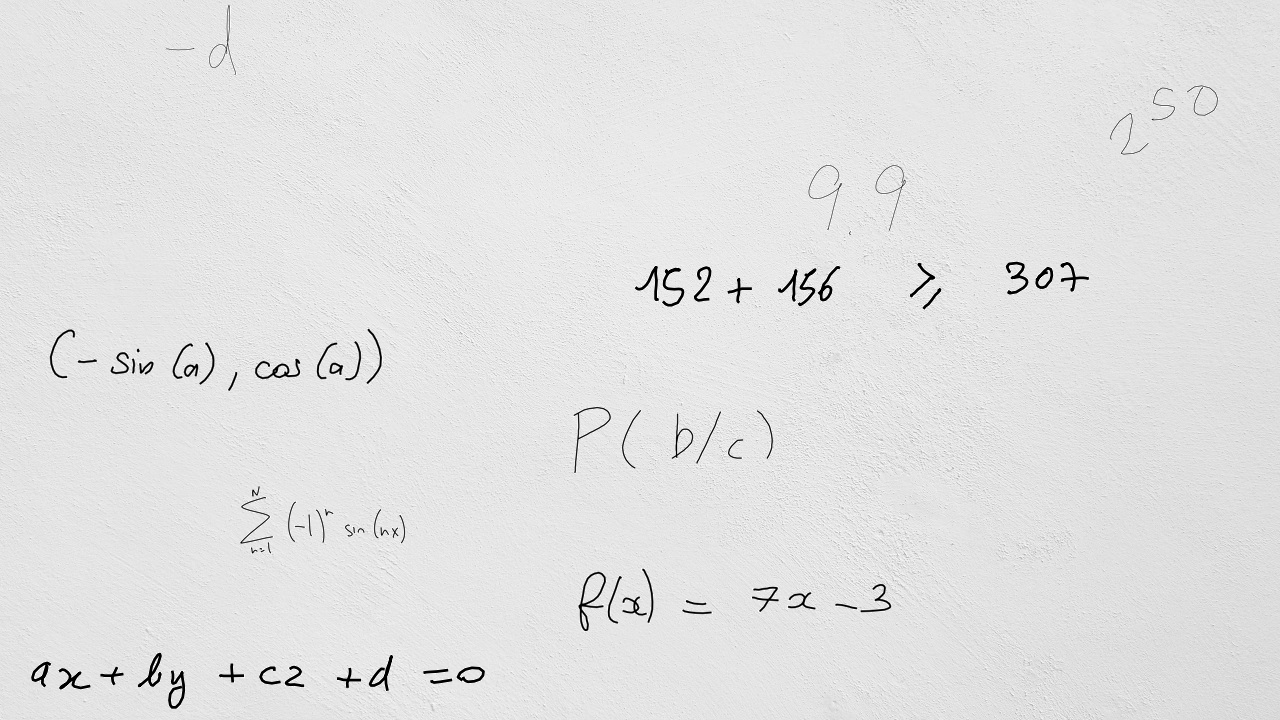 -d
2^50
9.9
152 + 156 ⩾ 307
(- sin (a), cos (a))
P( b/c )
∑_{n=1}^{N} (-1)^n sin (nx)
f(x) = 7x - 3
ax + by + cz + d = 0